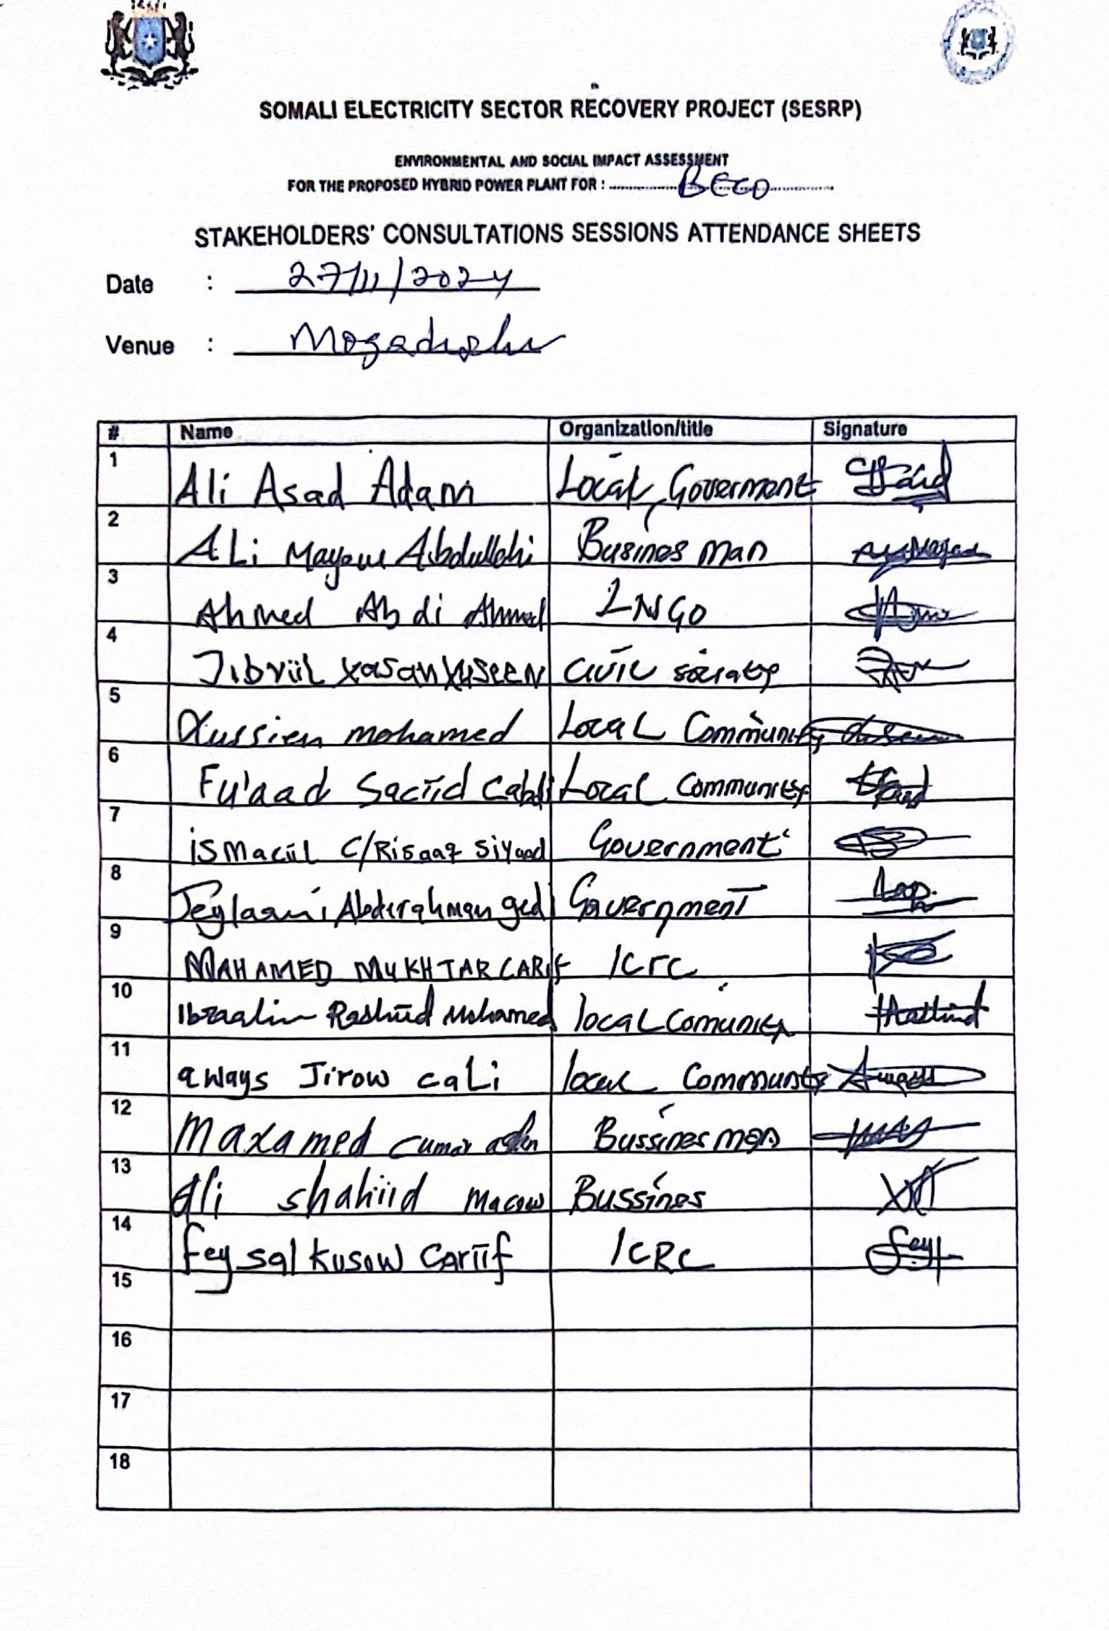 SOMALI ELECTRICITY SECTOR RECOVERY PROJECT (SESRP)
ENVIRONMENTAL AND SOCIAL IMPACT ASSESSMENT
FOR THE PROPOSED HYBRID POWER PLANT FOR : BECO
STAKEHOLDERS' CONSULTATIONS SESSIONS ATTENDANCE SHEETS
Date : 27/11/2024
Venue : Mogadishu
# Name Organization/title Signature
1 Ali Asad Adam Local Goverment
2 ALi Abdullahi Busines man
3 Ahmed Abdi Ahmed LNGO
4 Jibriil Xasan Xuseen Civil
5 Hussien mohamed Local Community
6 Fu'aad Saciid Cabdi Local Community
7 ismaciil C/Risaaq Siyaad Government
8 Jeylaani Abderahman gedi Government
9 MAHAMED MUKHTAR CARIF ICRC
10 Ibraahim Rashiid Mohamed local
11 aways Jirow caLi local Community
12 Maxamed Cumar Bussines man
13 Ali shahiid Macow Bussines
14 feysal kusow Cariif ICRC
15
16
17
18